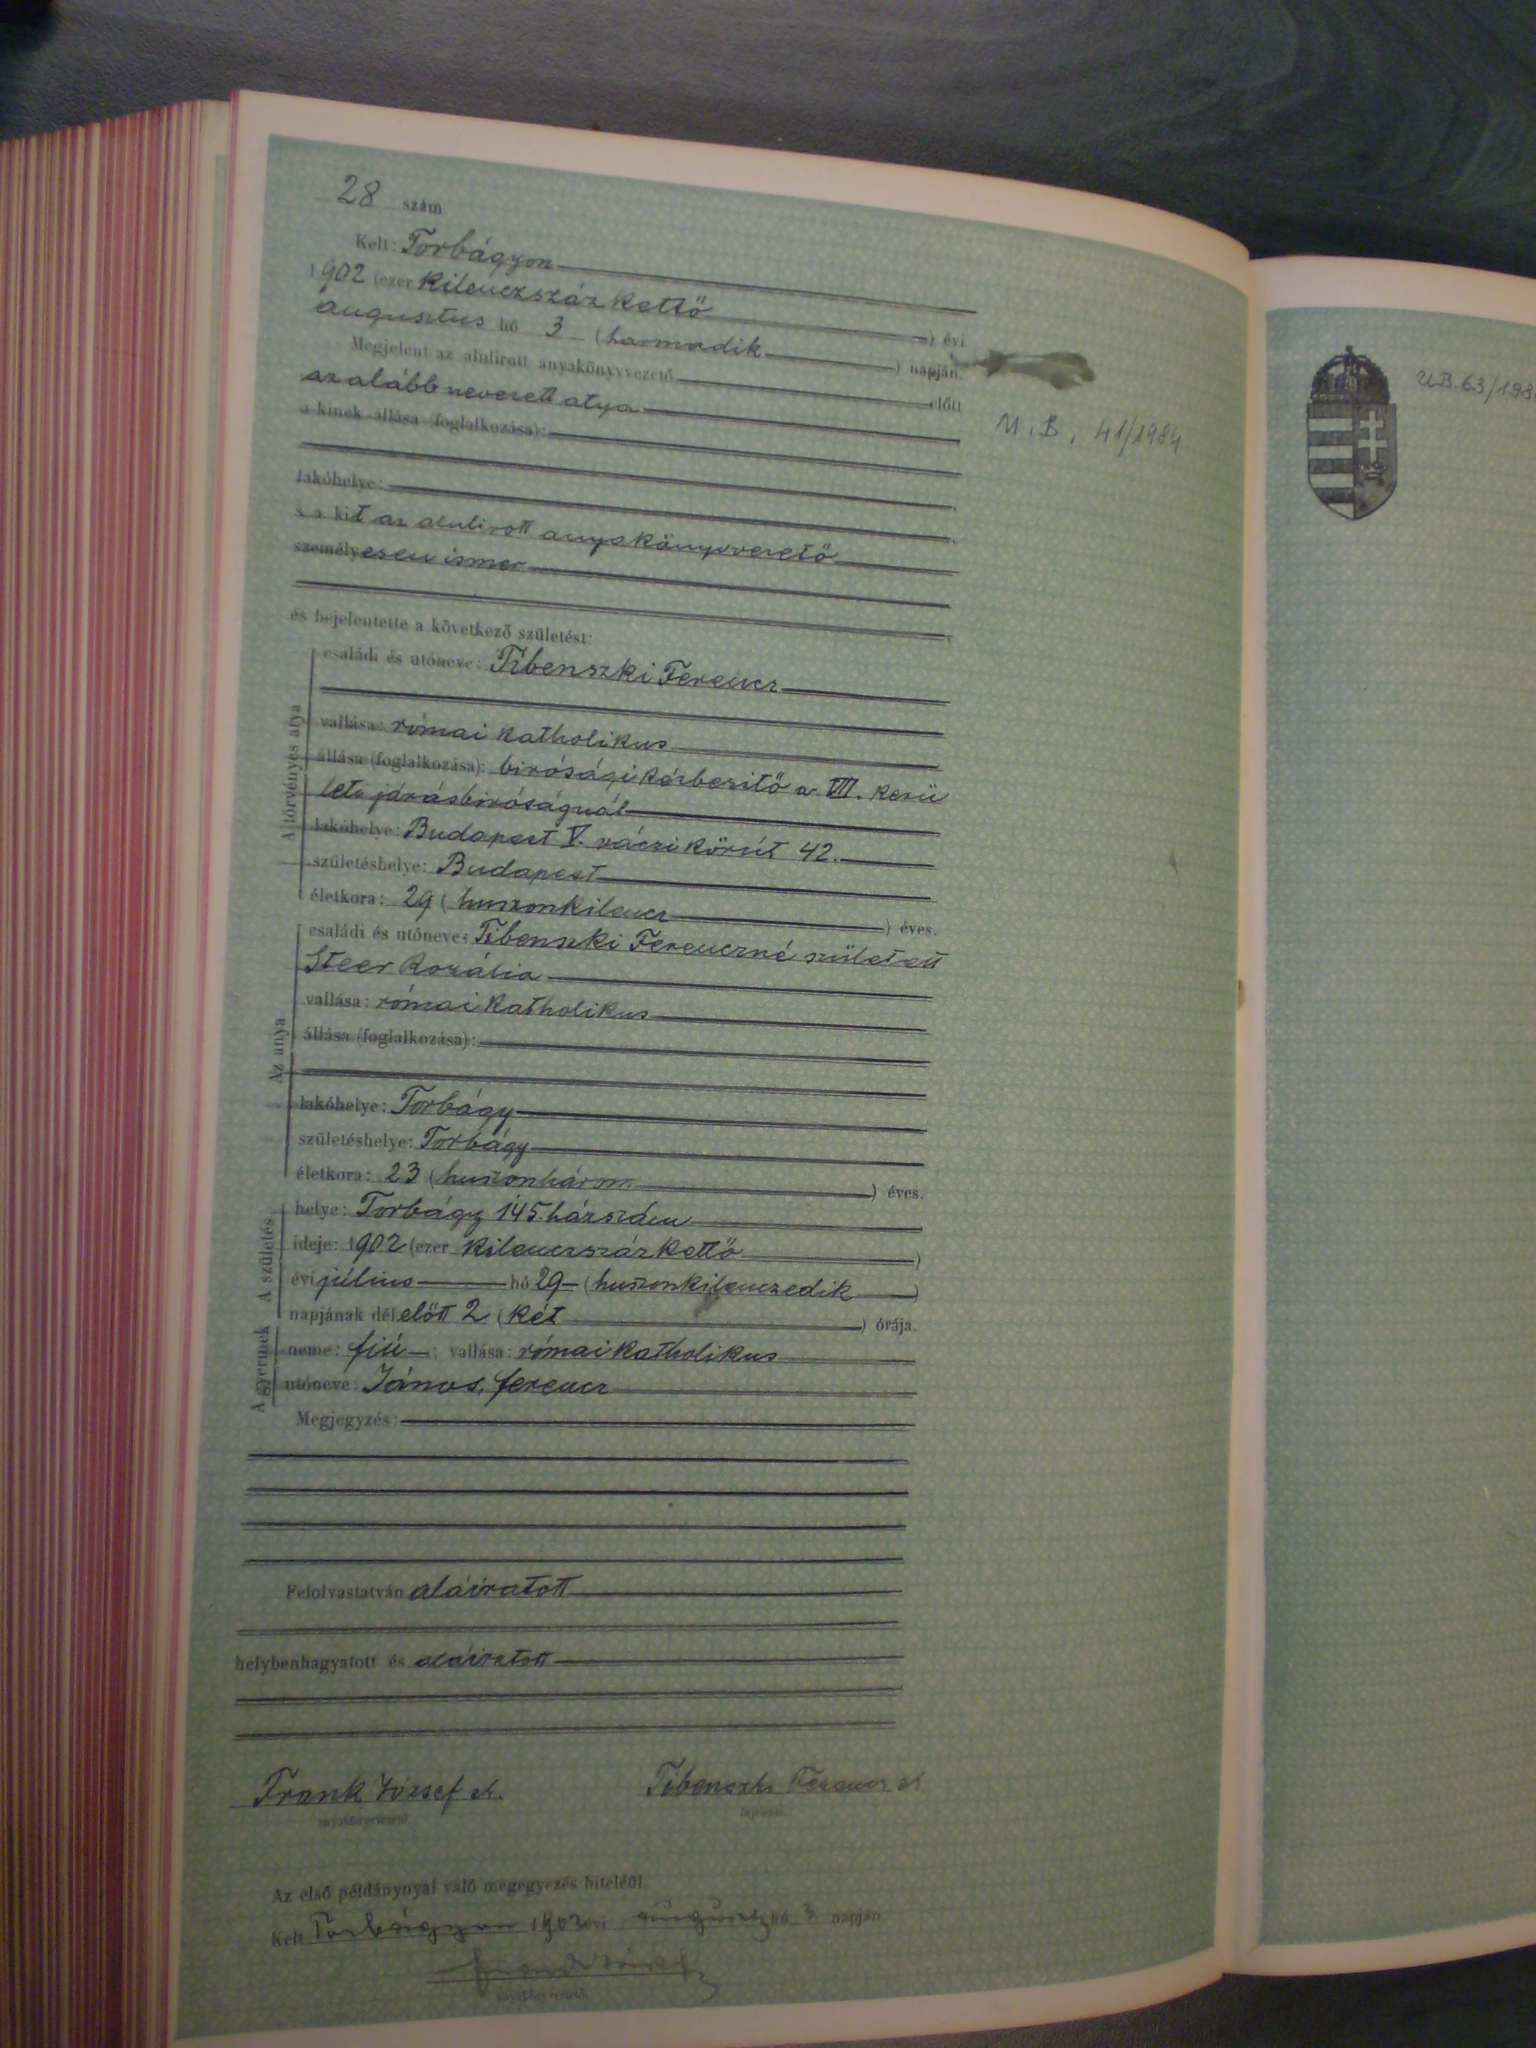 28 szám
Kelt: Torbágyon
1902 (ezer kilenczszáz kettő ) évi
augusztus hó 3 (harmadik ) napján.
Megjelent az alulirott anyakönyvvezető előtt
az alább nevezett atya
a kinek állása (foglalkozása):
lakóhelye:
s a kit az alulirott anyakönyvvezető
személyesen ismer
és bejelentette a következő születést:
A törvényes atya
családi és utóneve: Tibenszki Ferencz
vallása: római katholikus
állása (foglalkozása): birósági kézbesitő a VII. kerü
leti járásbiróságnál
lakóhelye: Budapest V. váczi körút 42.
születéshelye: Budapest
életkora: 29 (huszonkilencz ) éves.
Az anya
családi és utóneve: Tibenszki Ferenczné született
Steer Rozália
vallása: római katholikus
állása (foglalkozása):
lakóhelye: Torbágy
születéshelye: Torbágy
életkora: 23 (huszonhárom ) éves.
A születés
helye: Torbágy 145. házszám
ideje: 1902 (ezer kilenczszáz kettő )
évi július hó 29 (huszonkilenczedik )
napjának délelőtt 2 (két ) órája.
A gyermek
neme: fiú ; vallása: római katholikus
utóneve: János, ferencz
Megjegyzés:
Felolvastatván aláiratott
helybenhagyatott és aláiratott
Frank József Tibenszki Ferencz
anyakönyvvezető bejelentő.
Az első példánynyal való megegyezés hiteléül.
Kelt Torbágyon 1902 évi hó 3 napján
anyakönyvvezető
U. B. 41/1984
U.B. 63/198